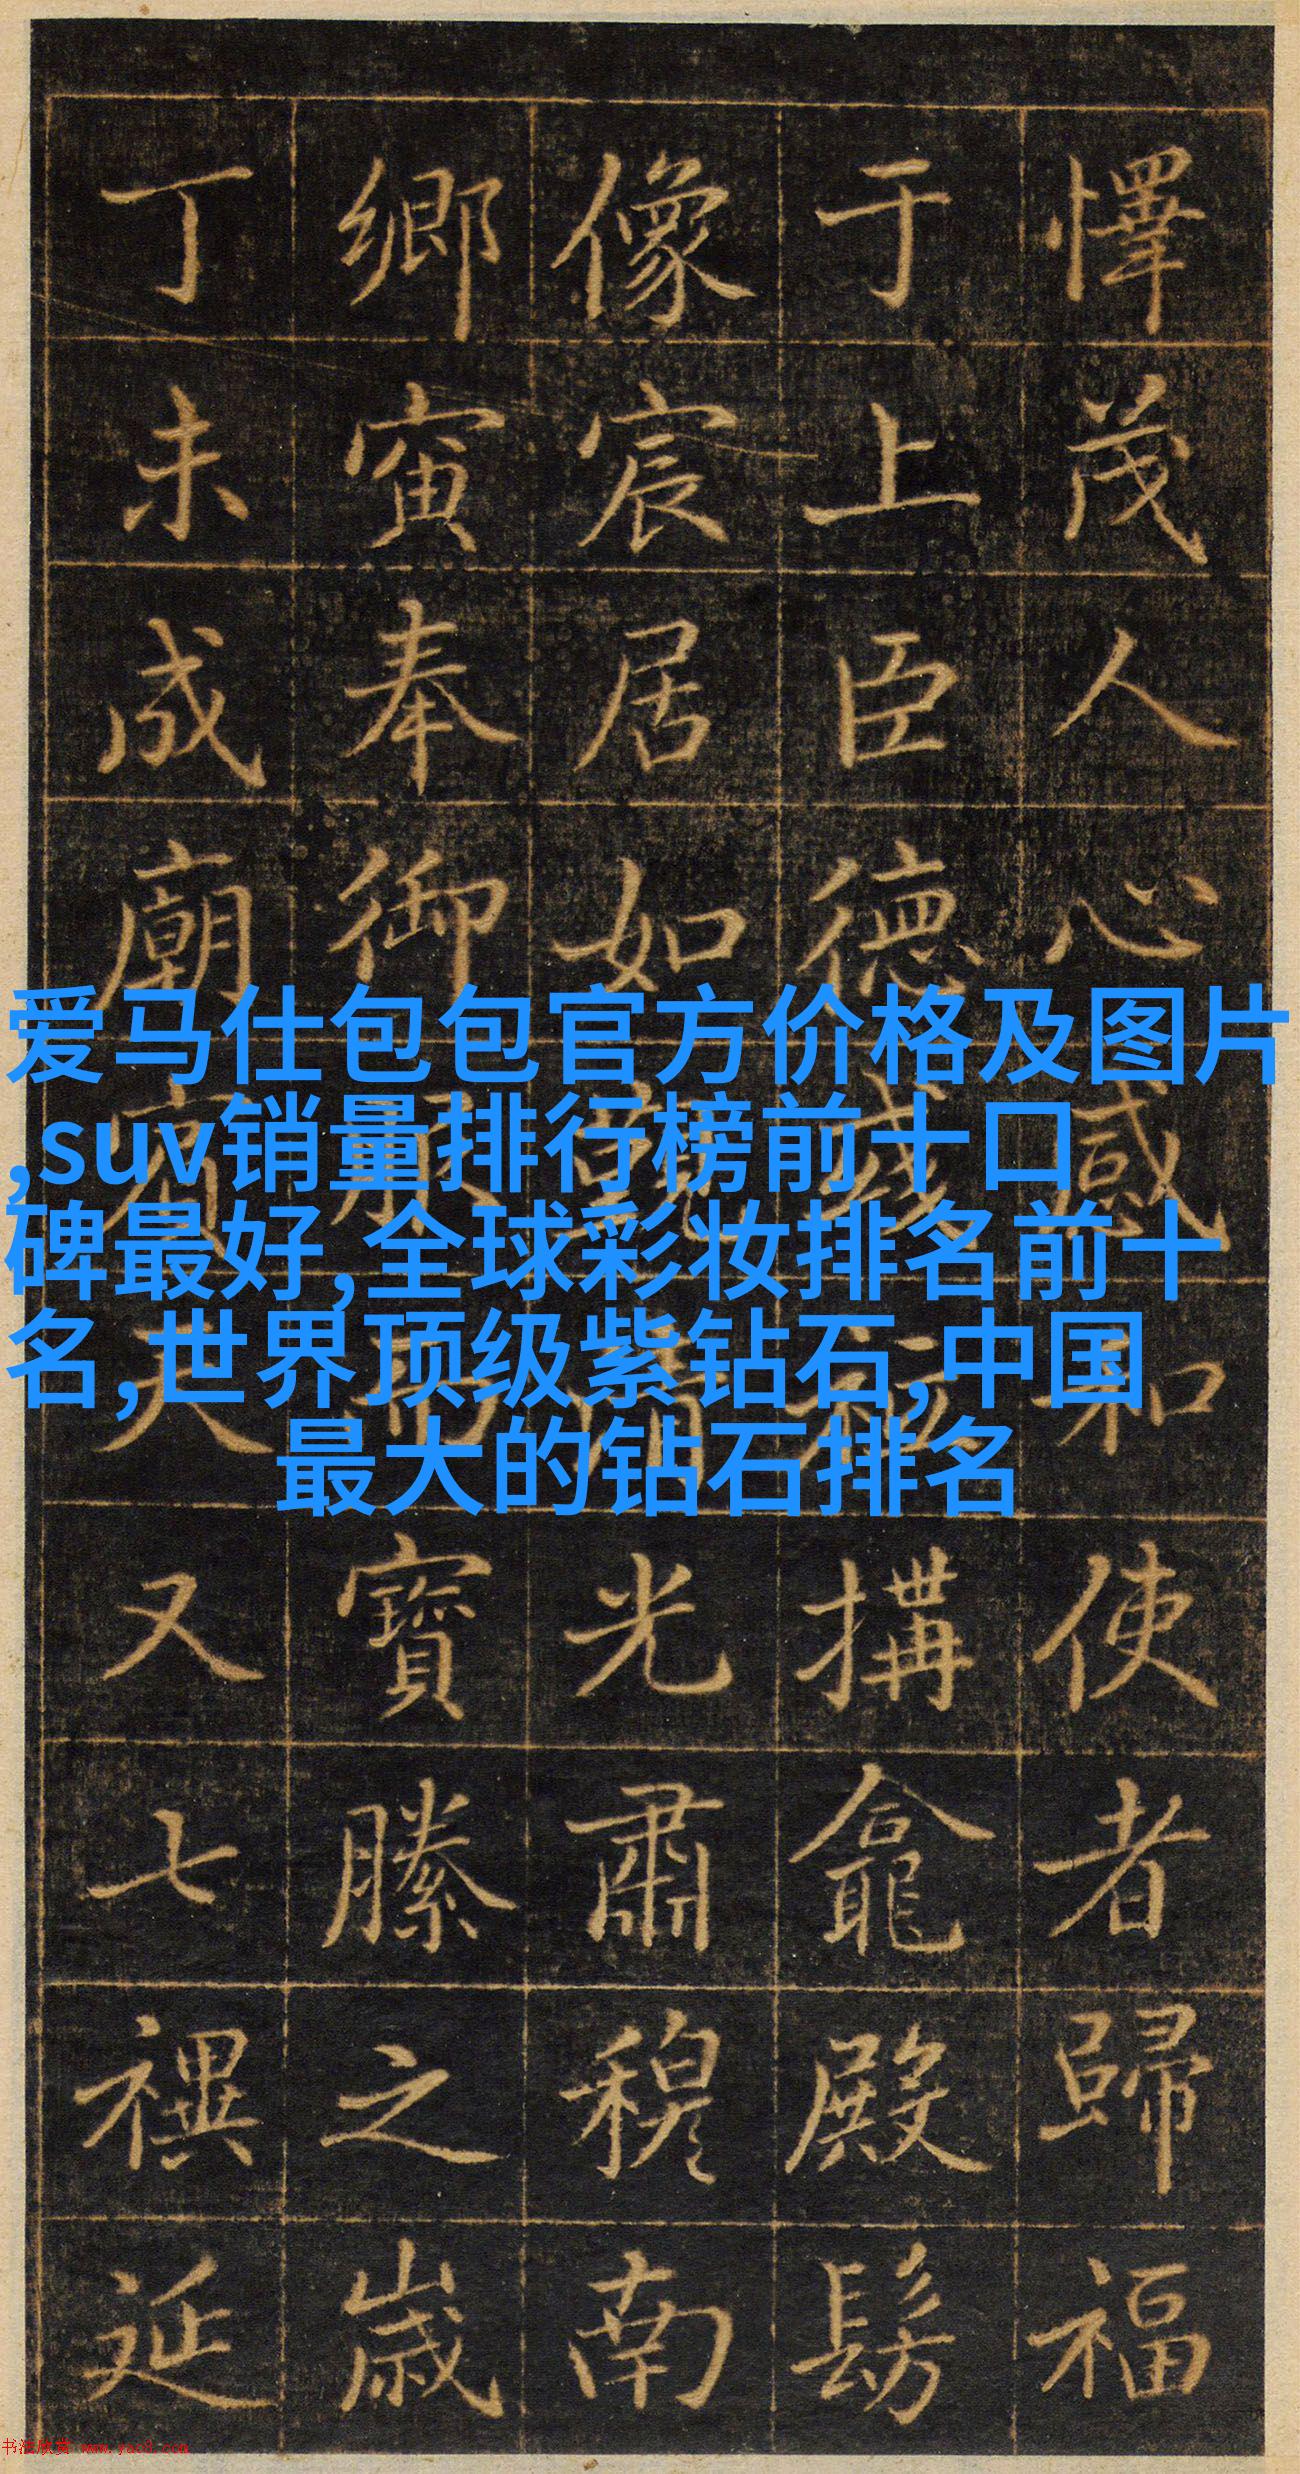 懌茂人心感和使者歸福
于上臣德搆龕殿髣
像宸居如光肅穆南
鄉寅奉御寶縢之歲
丁未成廟賓天又七禩延
爱马仕包包官方价格及图片
,suv销量排行榜前十口
碑最好,全球彩妆排名前十
名,世界顶级紫钻石,中国
最大的钻石排名
书法欣赏 www.yac8.com